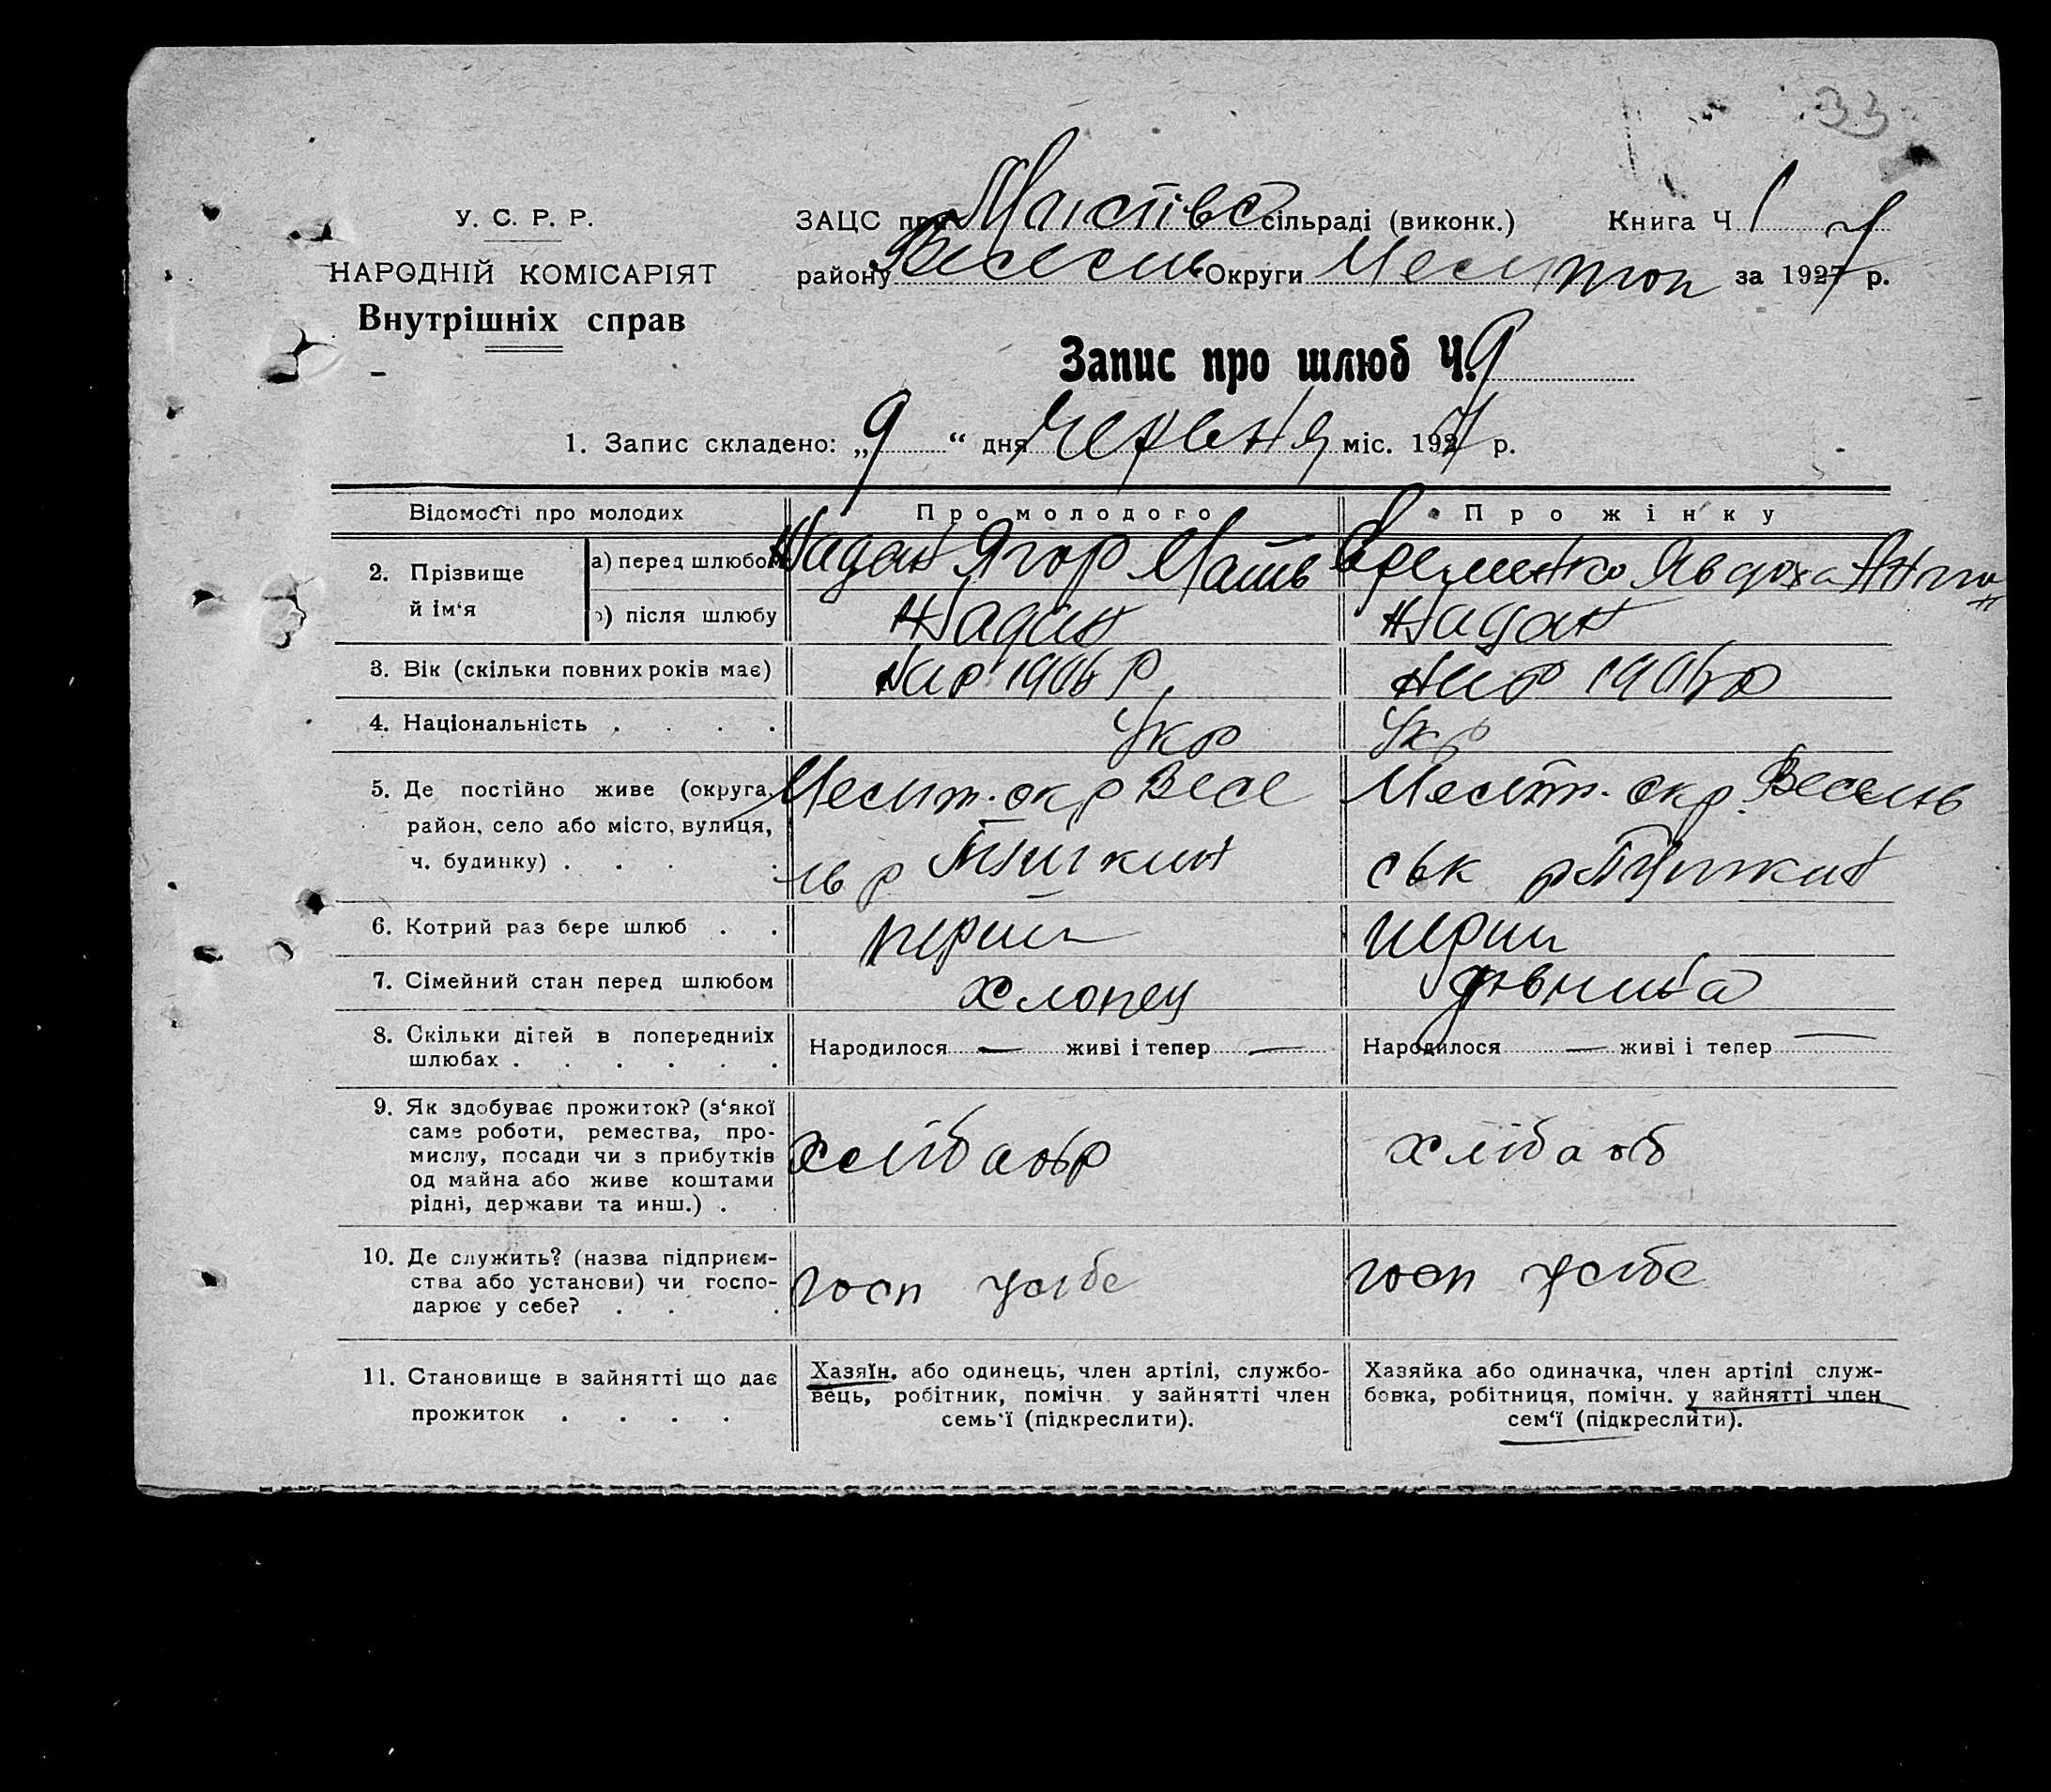 33
У. С. Р. Р.
НАРОДНІЙ КОМІСАРІЯТ
Внутрішніх справ
ЗАЦС при сільраді (виконк.) Книга Ч 1
району Весело Округи Меліттоп за 1927 р.
Запис про шлюб Ч. 9
1. Запис складено: „9“ дня Червня міс. 1927 р.
Відомості про молодих Про молодого Про жінку
2. Прізвище й ім‘я
а) перед шлюбом Надан Ягор Матв Єременко Явдоха Антон
б) після шлюбу Надан Надан
3. Вік (скільки повних років має) Нар 1906 р Нар 1906 р
4. Національність . . . . Укр Укр
5. Де постійно живе (округа, район, село або місто, вулиця, ч. будинку) . . . .
Меліт. окр Весе
лв р Пушкин
Меліт. окр. Веселів
ськ р Пушкин
6. Котрий раз бере шлюб . . перши перши
7. Сімейний стан перед шлюбом хлопец дівчина
8. Скільки дітей в попередниіх шлюбах . . . . . .
Народилося — живі і тепер —
Народилося — живі і тепер —
9. Як здобуває прожиток? (з‘якої
саме роботи, ремества, про-
мислу, посади чи з прибутків
од майна або живе коштами
рідні, держави та инш.) . .
хлібаобр
хлібаоб
10. Де служить? (назва підприєм-
ства або установи) чи госпо-
дарює у себе? . . .
госп усібе
госп усібе
11. Становище в зайнятті що дає
прожиток . . . .
Хазяїн, або одинець, член артілі, службо-
вець, робітник, помічн. у зайнятті член
семь‘ї (підкреслити).
Хазяйка або одиначка, член артілі служ-
бовка, робітниця, помічн. у зайнятті член
сем‘ї (підкреслити).